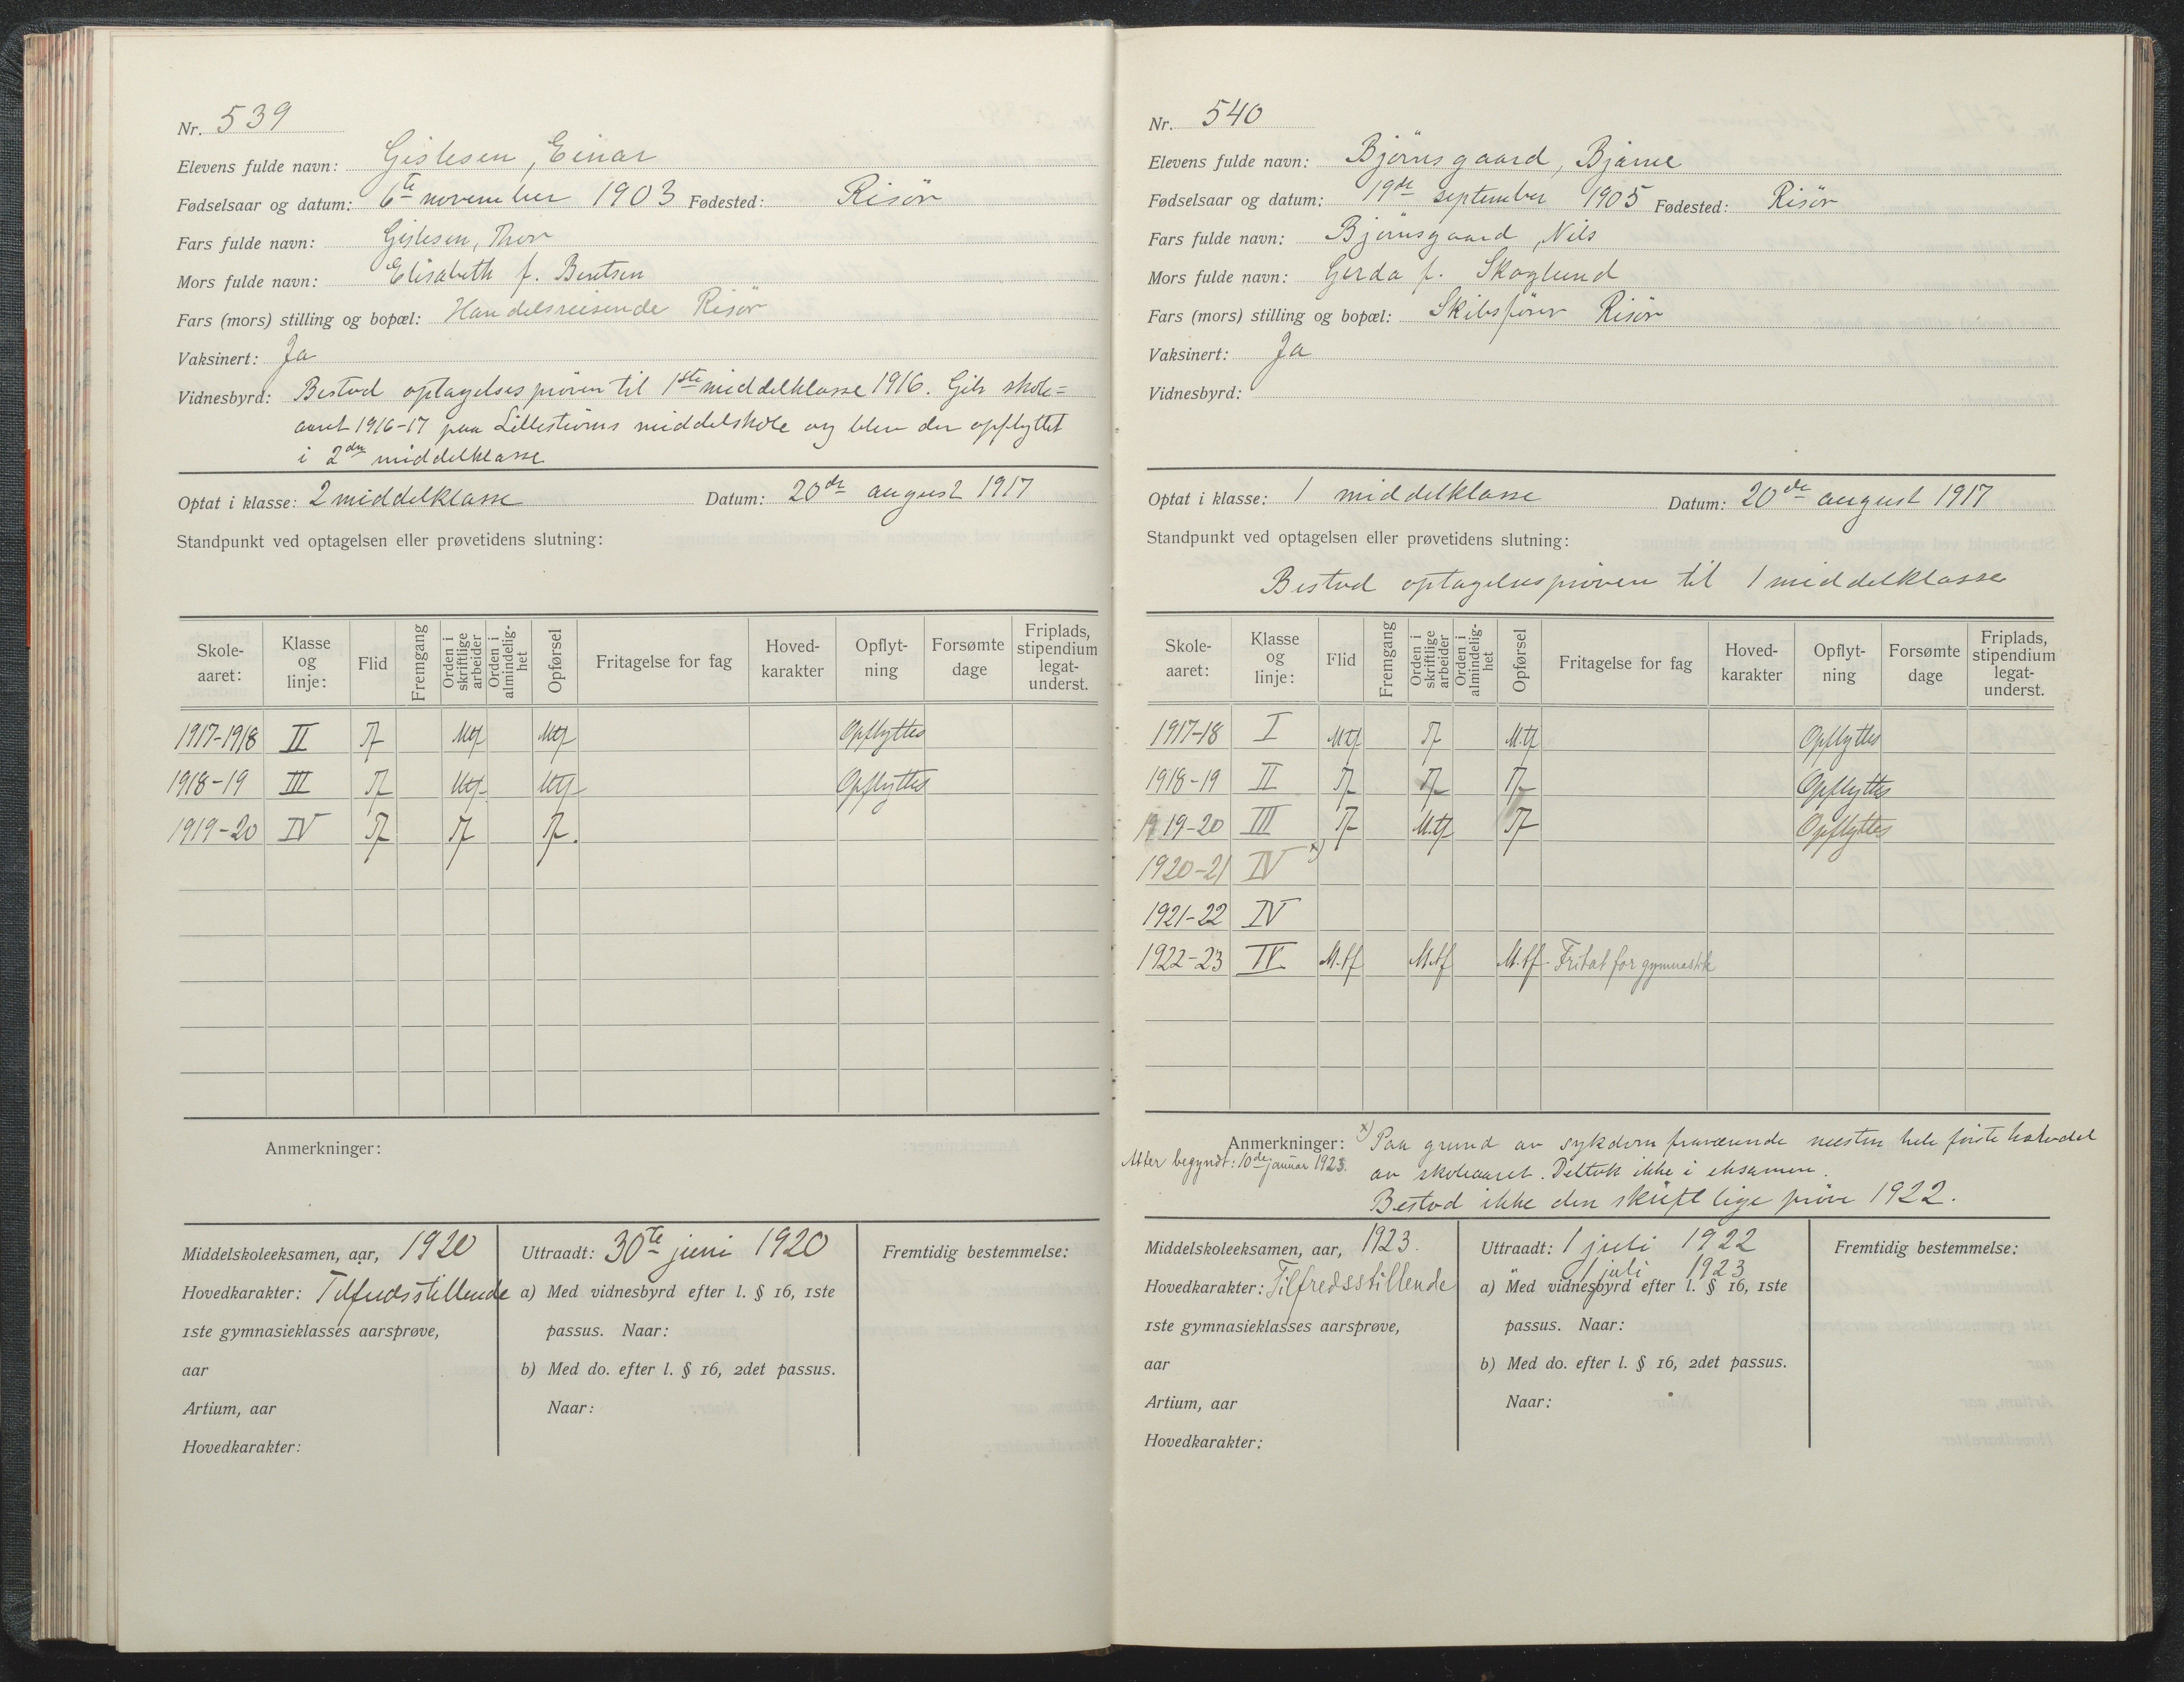 Nr. 539
Elevens fulde navn: Gislesen, Einar
Fødselsaar og datum: 6te november 1903 Fødested: Risör
Fars fulde navn: Gislesen, Thor
Mors fulde navn: Elisabeth f. Bentsen
Fars (mors) stilling og bopæl: Handelsreisende Risör
Vaksinert: Ja
Vidnesbyrd: Bestod optagelsesprøven til 1ste middelklasse 1916. Gik skole=
aaret 1916-17 paa Lillestrøms middelskole og blev der opflyttet
i 2den middelklasse
Optat i klasse: 2 middelklasse Datum: 20de august 1917
Standpunkt ved optagelsen eller prøvetidens slutning:
Skole-aaret: Klasse og linje: Flid Fremgang Orden i skriftlige arbeider Orden i almindelig-het Opførsel Fritagelse for fag Hoved-karakter Opflyt-ning Forsømte dage Friplads, stipendium legat-underst.
1917-1918 II Tf Mtf Mtf Opflyttes
1918-19 III Tf Mtf Mtf Opflyttes
1919-20 IV Tf Tf Tf.
Anmerkninger:
Middelskoleeksamen, aar, 1920
Hovedkarakter: Tilfredsstillende
1ste gymnasieklasses aarsprøve,
aar
Artium, aar
Hovedkarakter:
Uttraadt: 30te juni 1920
a) Med vidnesbyrd efter l. § 16, 1ste
passus. Naar:
b) Med do. efter l. § 16, 2det passus.
Naar:
Fremtidig bestemmelse:
Nr. 540
Elevens fulde navn: Bjørnsgaard, Bjarne
Fødselsaar og datum: 19de september 1905 Fødested: Risör
Fars fulde navn: Bjørnsgaard, Nils
Mors fulde navn: Gerda f. Skoglund
Fars (mors) stilling og bopæl: Skibsfører Risör
Vaksinert: Ja
Vidnesbyrd:
Optat i klasse: 1 middelklasse Datum: 20de august 1917
Standpunkt ved optagelsen eller prøvetidens slutning:
Bestod optagelsesprøven til 1 middelklasse
Skole-aaret: Klasse og linje: Flid Fremgang Orden i skriftlige arbeider Orden i almindelig-het Opførsel Fritagelse for fag Hoved-karakter Opflyt-ning Forsømte dage Friplads, stipendium legat-underst.
1917-18 I Mtf Tf M.tf Opflyttes
1918-19 II Tf Tf Tf Opflyttes
1919-20 III Tf M.tf Tf Opflyttes
1920-21 IV x)
1921-22 IV
1922-23 IV M.tf M.tf M.tf. Fritat for gymnastik
Anmerkninger: x) Paa grund av sykdom fraværende næsten hele første halvdel
Atter begyndt: 10de januar 1923.
av skoleaaret. Deltok ikke i eksamen.
Bestod ikke den skriftlige prøve 1922.
Middelskoleeksamen, aar, 1923.
Hovedkarakter: Tilfredsstillende
1ste gymnasieklasses aarsprøve,
aar
Artium, aar
Hovedkarakter:
Uttraadt: 1 juli 1922
" 1 juli 1923
a) Med vidnesbyrd efter l. § 16, 1ste
passus. Naar:
b) Med do. efter l. § 16, 2det passus.
Naar:
Fremtidig bestemmelse: